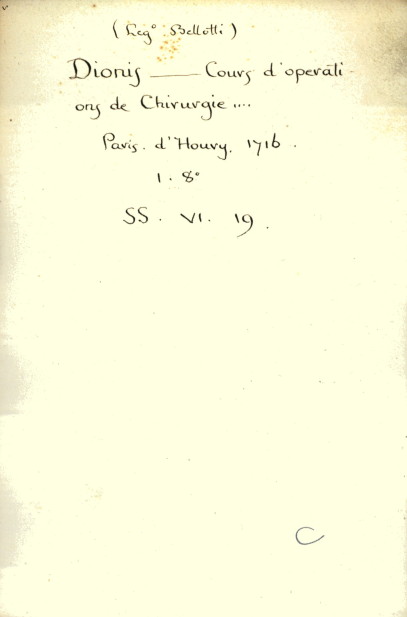 (Leg° Bellotti)
Dionis — Cours d'operati-
ons de Chirurgie ....
Paris. d'Houry. 1716.
1. 8°
SS. VI. 19.
C